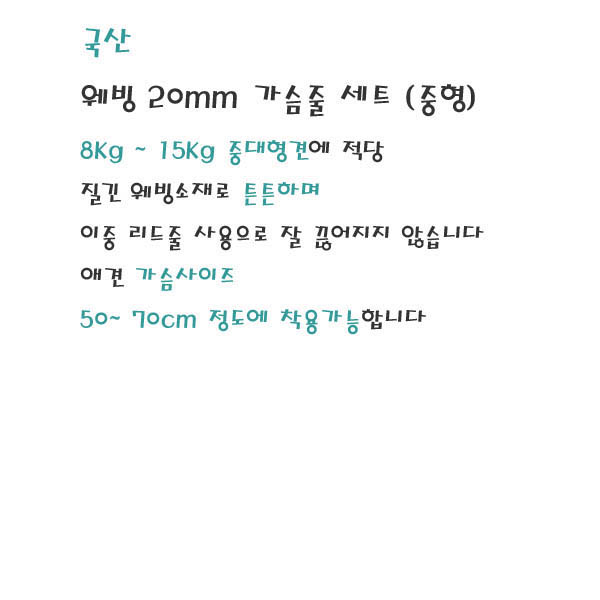 국산
웨빙 20mm 가슴줄 세트 (중형)
8Kg ~ 15Kg 중대형견에 적당
질긴 웨빙소재로 튼튼하며
이중 리드줄 사용으로 잘 끊어지지 않습니다
애견 가슴사이즈
50~ 70cm 정도에 착용가능합니다